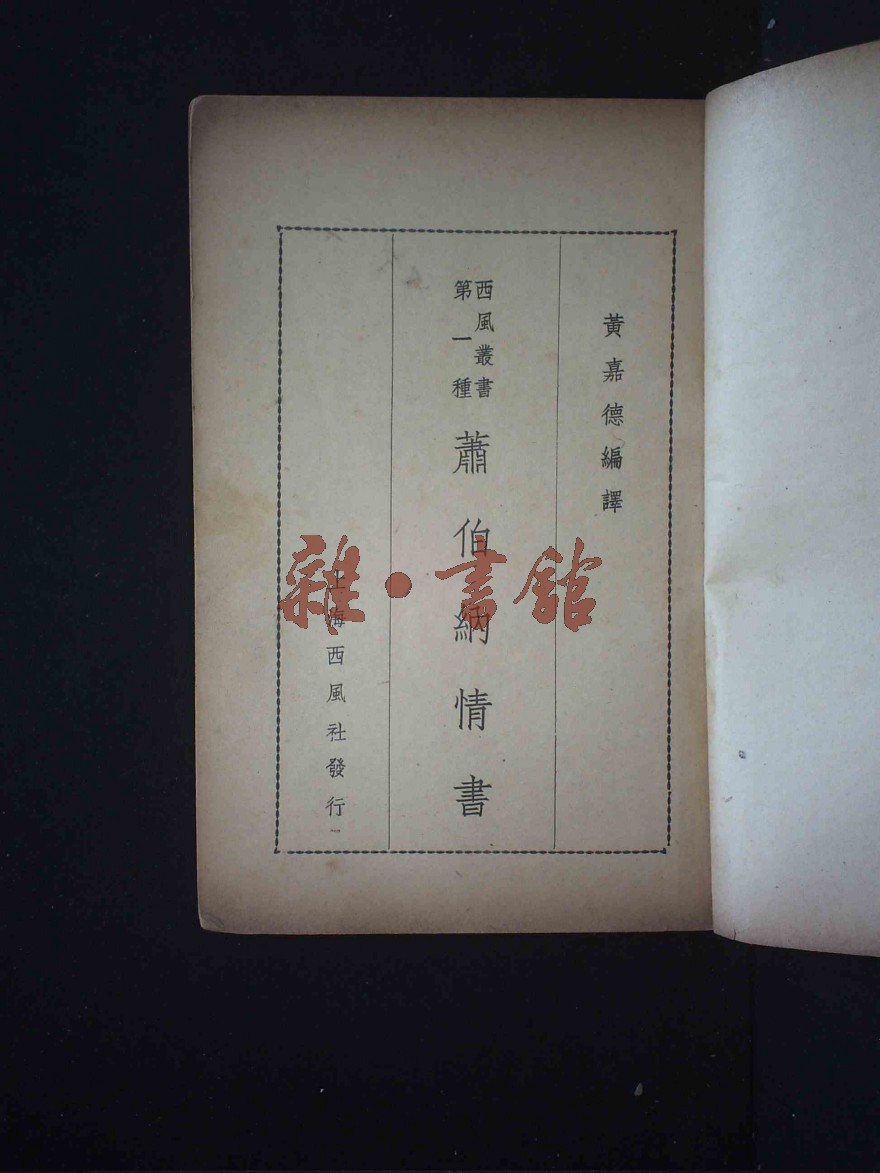 黃嘉德編譯
西風叢書
第一種
蕭伯納情書
上海西風社發行
雜·書館